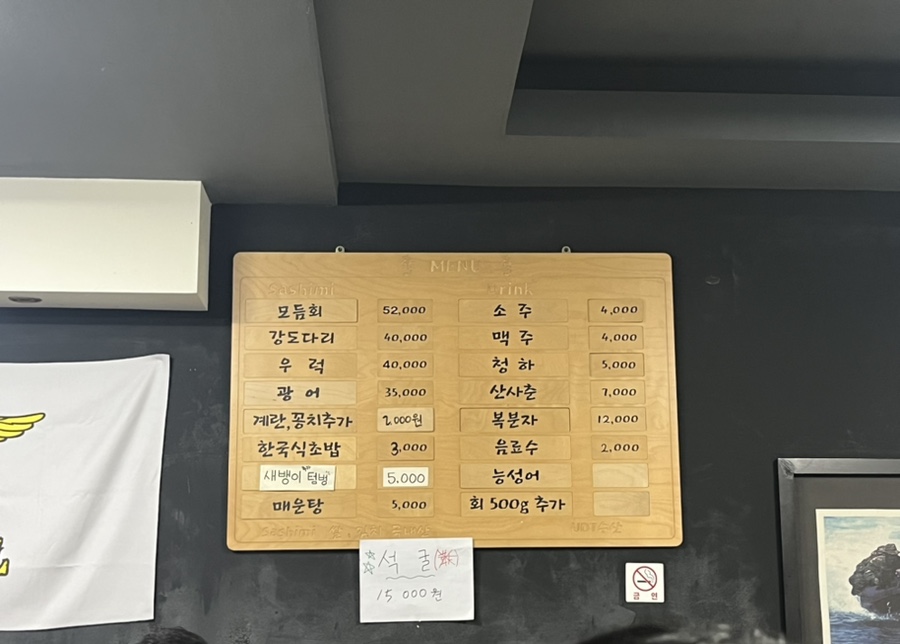 MENU
Sashimi
Drink
모듬회 52,000
강도다리 40,000
우럭 40,000
광어 35,000
계란,꽁치추가 2,000원
한국식초밥 3,000
새뱅이"텀벙" 5.000
매운탕 5,000
소주 4,000
맥주 4,000
청하 5,000
산사춘 7,000
복분자 12,000
음료수 2,000
능성어
회 500g 추가
Sashimi
석굴
15 000원
금연